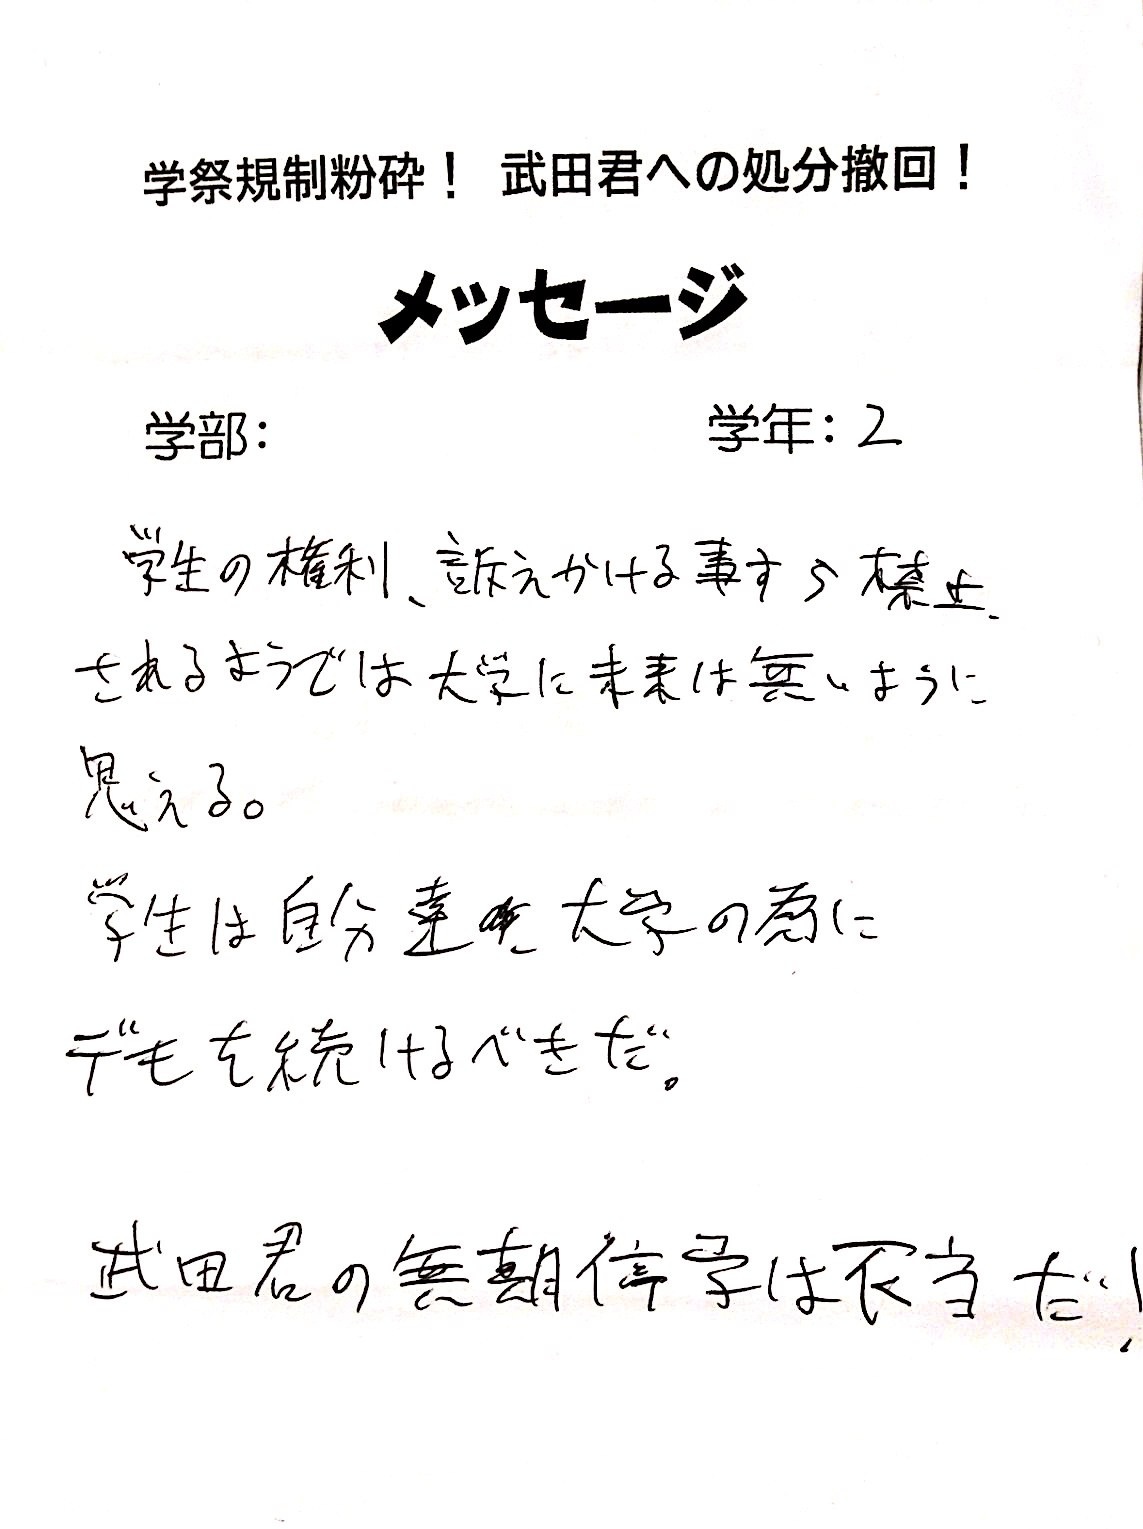 学祭規制粉砕！ 武田君への処分撤回！
メッセージ
学部： 学年：2
学生の権利、訴えかける事すら禁止
されるようでは大学に未来は無いように
思える。
学生は自分達と大学の為に
デモを続けるべきだ。
武田君の無期停学は不当だ！